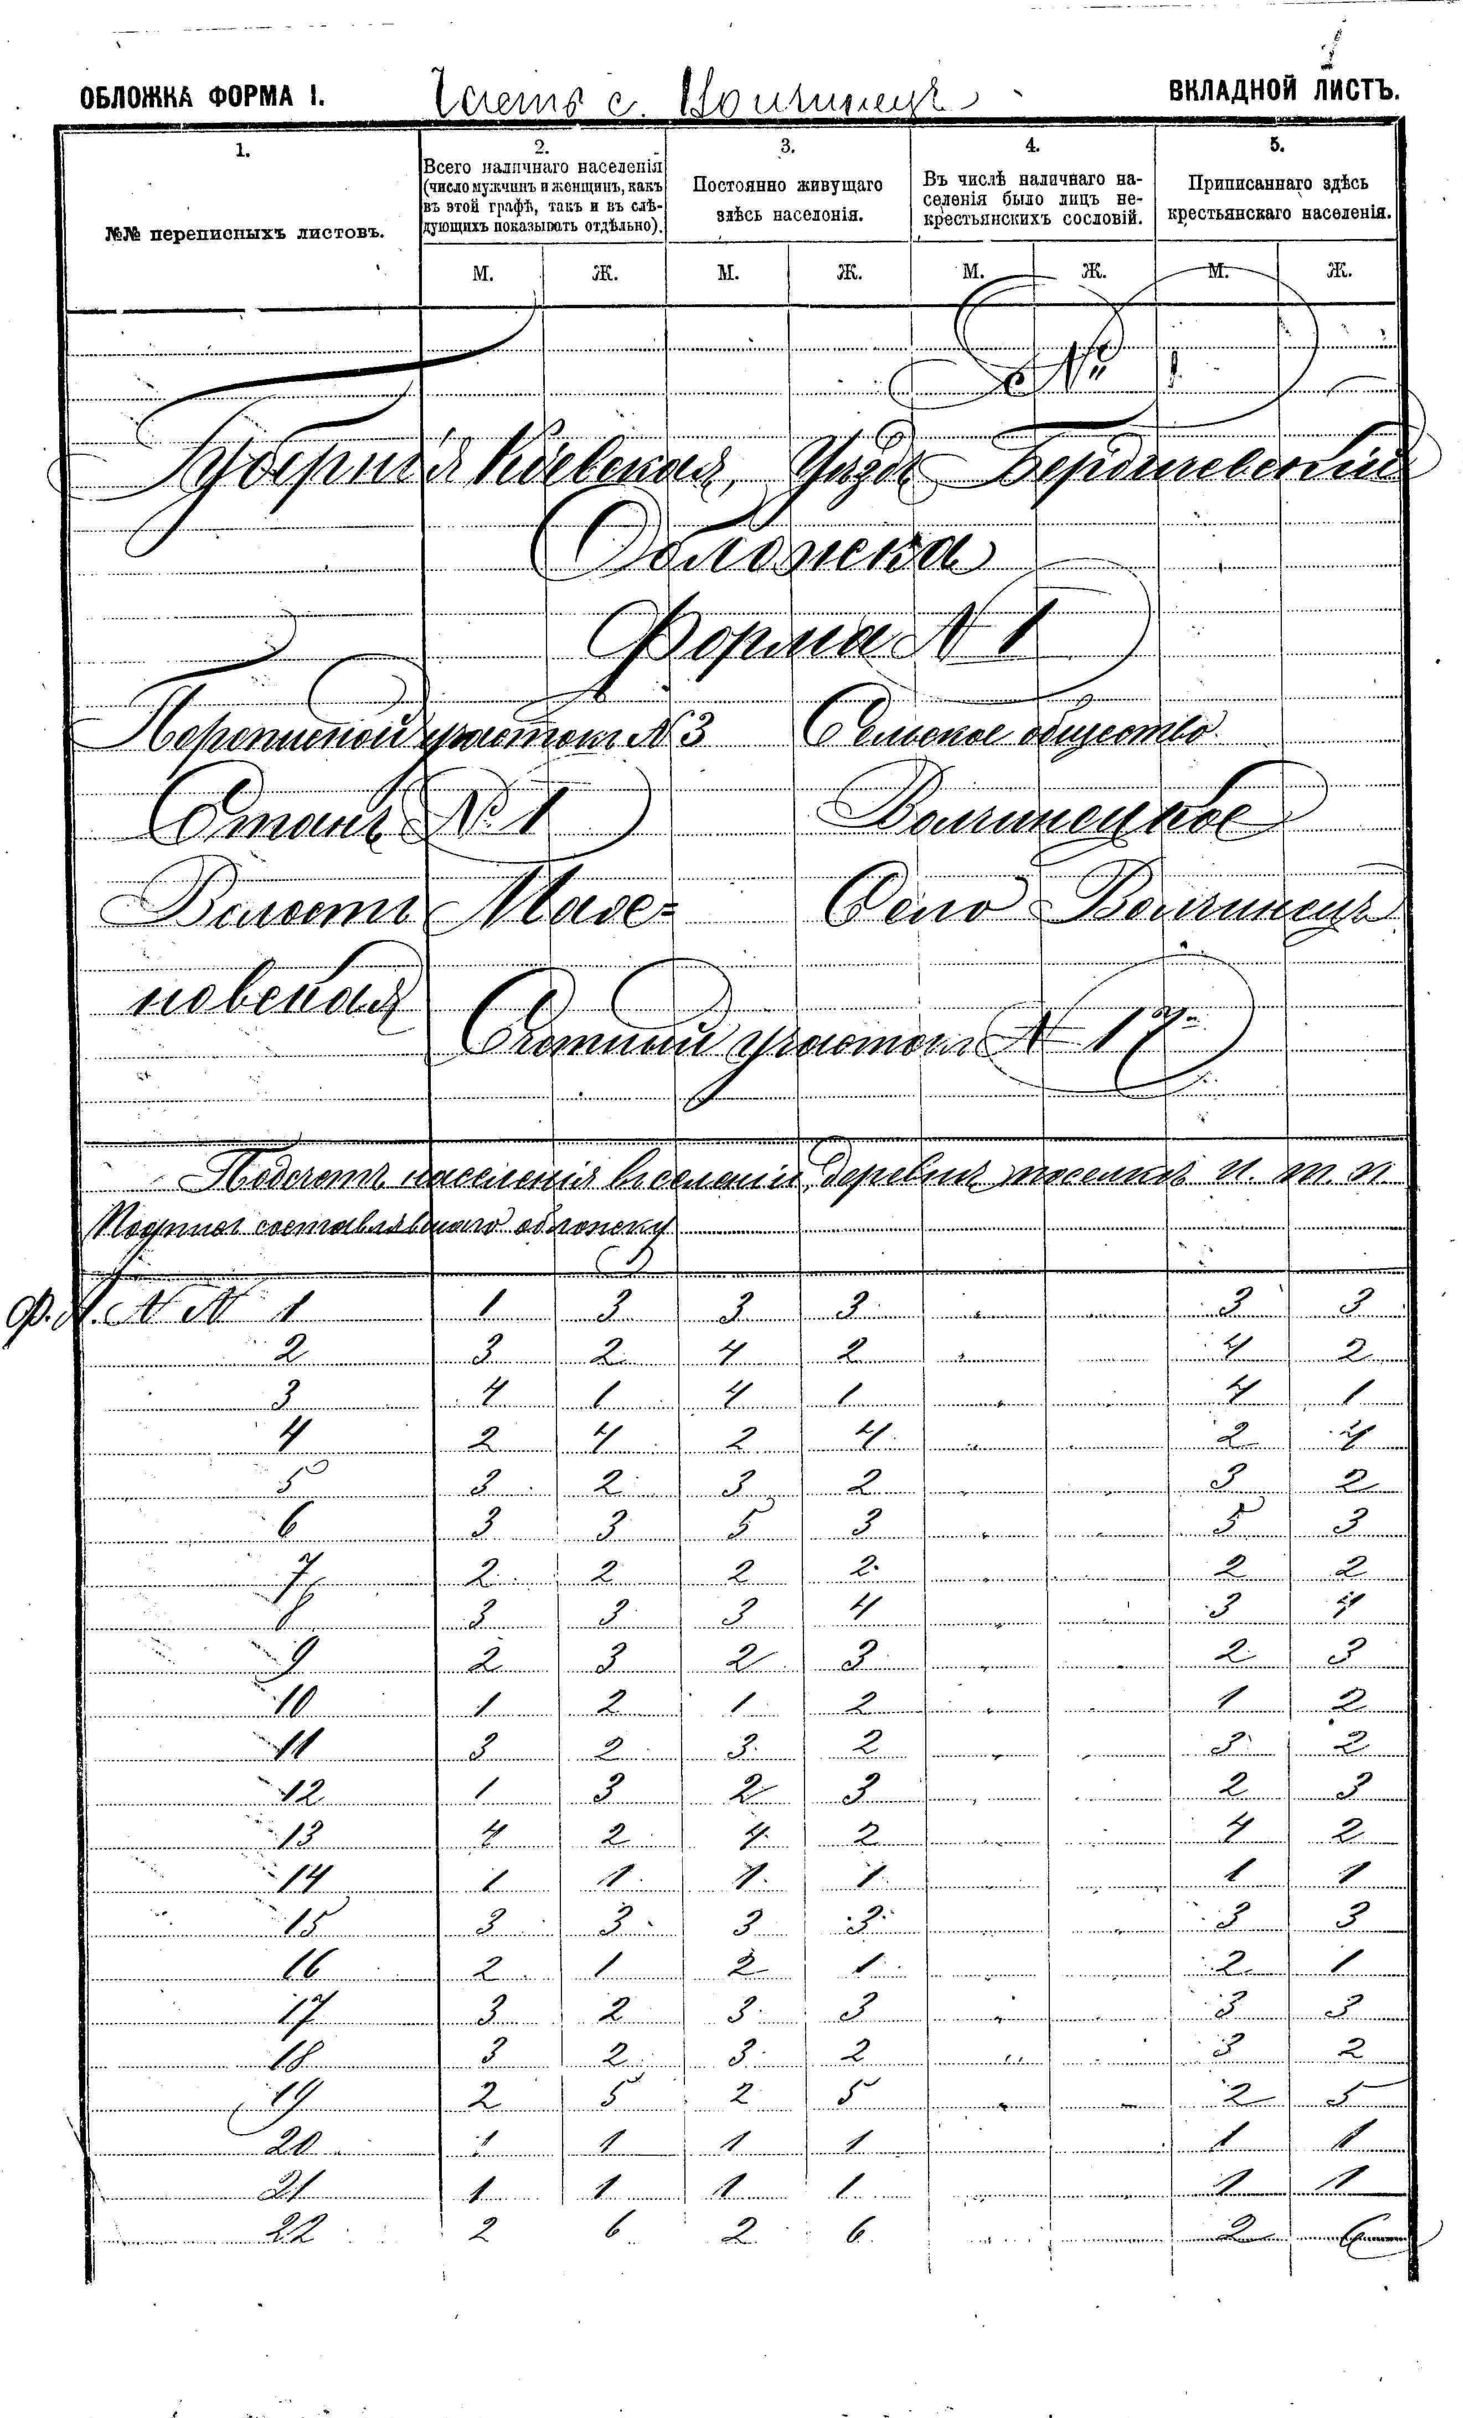 1
ОБЛОЖКА ФОРМА I. Часть с. Волчинецъ ВКЛАДНОЙ ЛИСТЪ.
1. 2. 3. 4. 5.
№№ переписныхъ листовъ.
Всего наличнаго населенія
(число мужчинъ и женщинъ, какъ
въ этой графѣ, такъ и въ слѣ-
дующихъ показывать отдѣльно).
Постоянно живущаго
здѣсь населенія.
Въ числѣ наличнаго на-
селенія было лицъ не-
крестьянскихъ сословій.
Приписаннаго здѣсь
крестьянскаго населенія.
М. Ж. М. Ж. М. Ж. М. Ж.
№ 1
Губернія Кіевская, Уѣздъ Бердичевскій
Обложка
Форма № 1
Переписной участокъ № 3 Сельское общество
Станъ № 1 Волчинецкое
Волость Махно- Село Волчинецъ
новская
Счетный участокъ № 17
Подсчетъ населенія въ селеніи, деревни, поселкѣ и. т. п.
Подпись составлявшаго обложку
Ф. А. № № 1 1 3 3 3 3 3
2 3 2 4 2 4 2
3 4 1 4 1 4 1
4 2 4 2 4 2 4
5 3 2 3 2 3 2
6 3 3 5 3 5 3
7 2 2 2 2 2 2
8 3 3 3 4 3 4
9 2 3 2 3 2 3
10 1 2 1 2 1 2
11 3 2 3 2 3 2
12 1 3 2 3 2 3
13 4 2 4 2 4 2
14 1 1 1 1 1 1
15 3 3 3 3 3 3
16 2 1 2 1 2 1
17 3 2 3 3 3 3
18 3 2 3 2 3 2
19 2 5 2 5 2 5
20 1 1 1 1 1 1
21 1 1 1 1 1 1
22 2 6 2 6 2 6